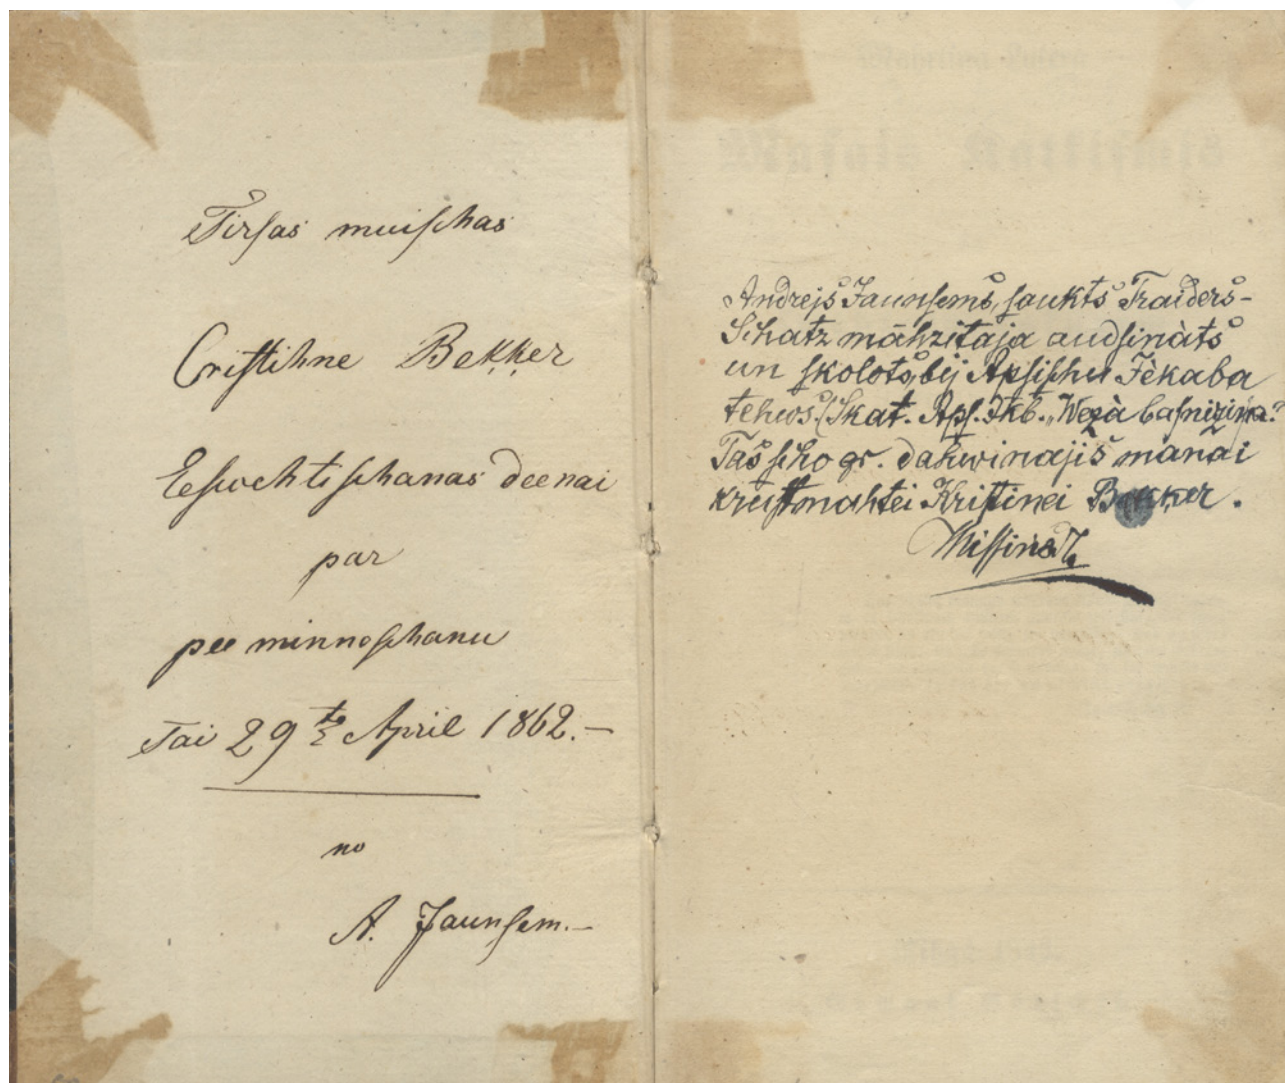 Tirſas muiſchas
Criſtihne Beķķer
Eeſwehtiſchanas deenai
par
peeminnoſchanu
Tai 29te April 1862.–
no
A. Jaunſem.–
Andrejs Jaunſems, ſaukts Traiders-
Schatz mahzitaja audſinàts
un ſkolots, bij Apſiſchu Jèkaba
tehws. (Skat. Apſ. Jkb. „Wezà baſnizina?
Tas ſcho gr. dahwinajis manai
kruſtmahtei Kriſtinei Bekker.
Miſſiņa J.